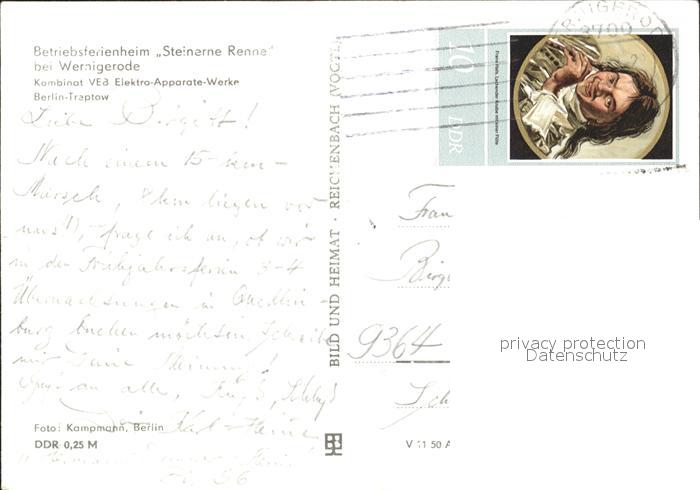 Betriebsferienheim „Steinerne Renne"
bei Wernigerode
Kombinat VEB Elektro-Apparate-Werke
Berlin-Treptow
Liebe Birgitt!
Nach einem 15-km-
Marsch, 8 km liegen vor
uns!), frage ich an, ob wir
in den Frühjahrsferien 3-4
Übernachtungen in Quedlin-
burg buchen möchten. Schreib
mir Deine Meinung!
an alle,
Karl-Heinz
56
Foto: Kampmann, Berlin
DDR 0,25 M
BILD UND HEIMAT · REICHENBACH (VOGTL
V 11 50 A
10
DDR
Frans Hals, Lachender Knabe mit einer Flöte
3700
Frau
Birgi
9364
Sch
privacy protection
Datenschutz